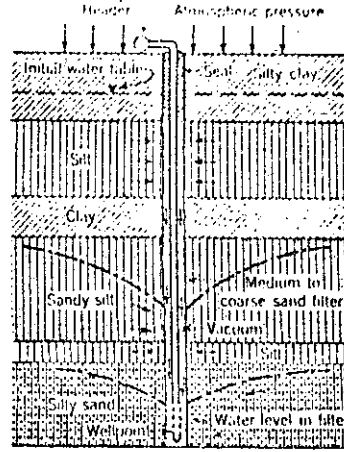 Header Atmospheric pressure
Initial water table Seal Silty clay
Silt
Clay
Medium to
coarse sand filter
Sandy silt
Vacuum
Silt
Silty sand
Wellpoint
Water level in filter